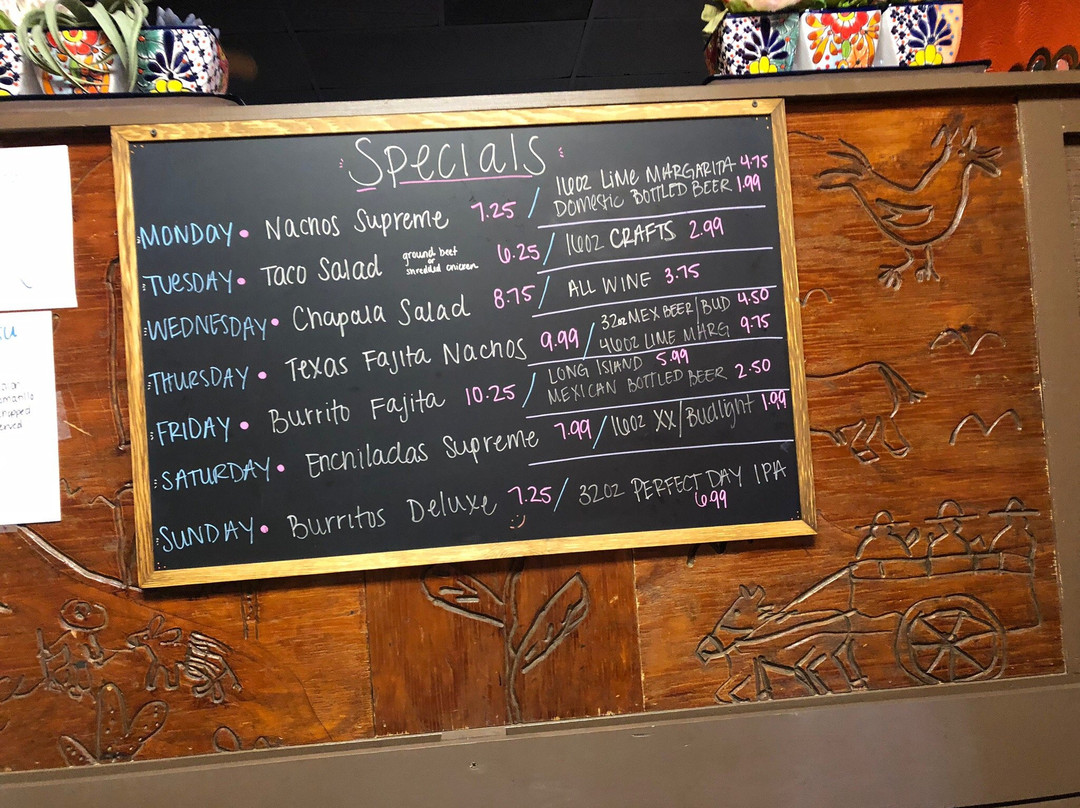 Specials
MONDAY • Nachos Supreme 7.25 / 16oz LIME MARGARITA 4.75
DOMESTIC BOTTLED BEER 1.99
TUESDAY • Taco Salad ground beef or shredded chicken 6.25 / 16oz CRAFTS 2.99
WEDNESDAY • Chapala Salad 8.75 / ALL WINE 3.75
THURSDAY • Texas Fajita Nachos 9.99 / 32oz MEX BEER/BUD 4.50
46oz LIME MARG 9.75
FRIDAY • Burrito Fajita 10.25 / LONG ISLAND 5.99
MEXICAN BOTTLED BEER 2.50
SATURDAY • Enchiladas Supreme 7.99 / 16oz XX/Budlight 1.99
SUNDAY • Burritos Deluxe 7.25 / 32oz PERFECT DAY IPA
6.99